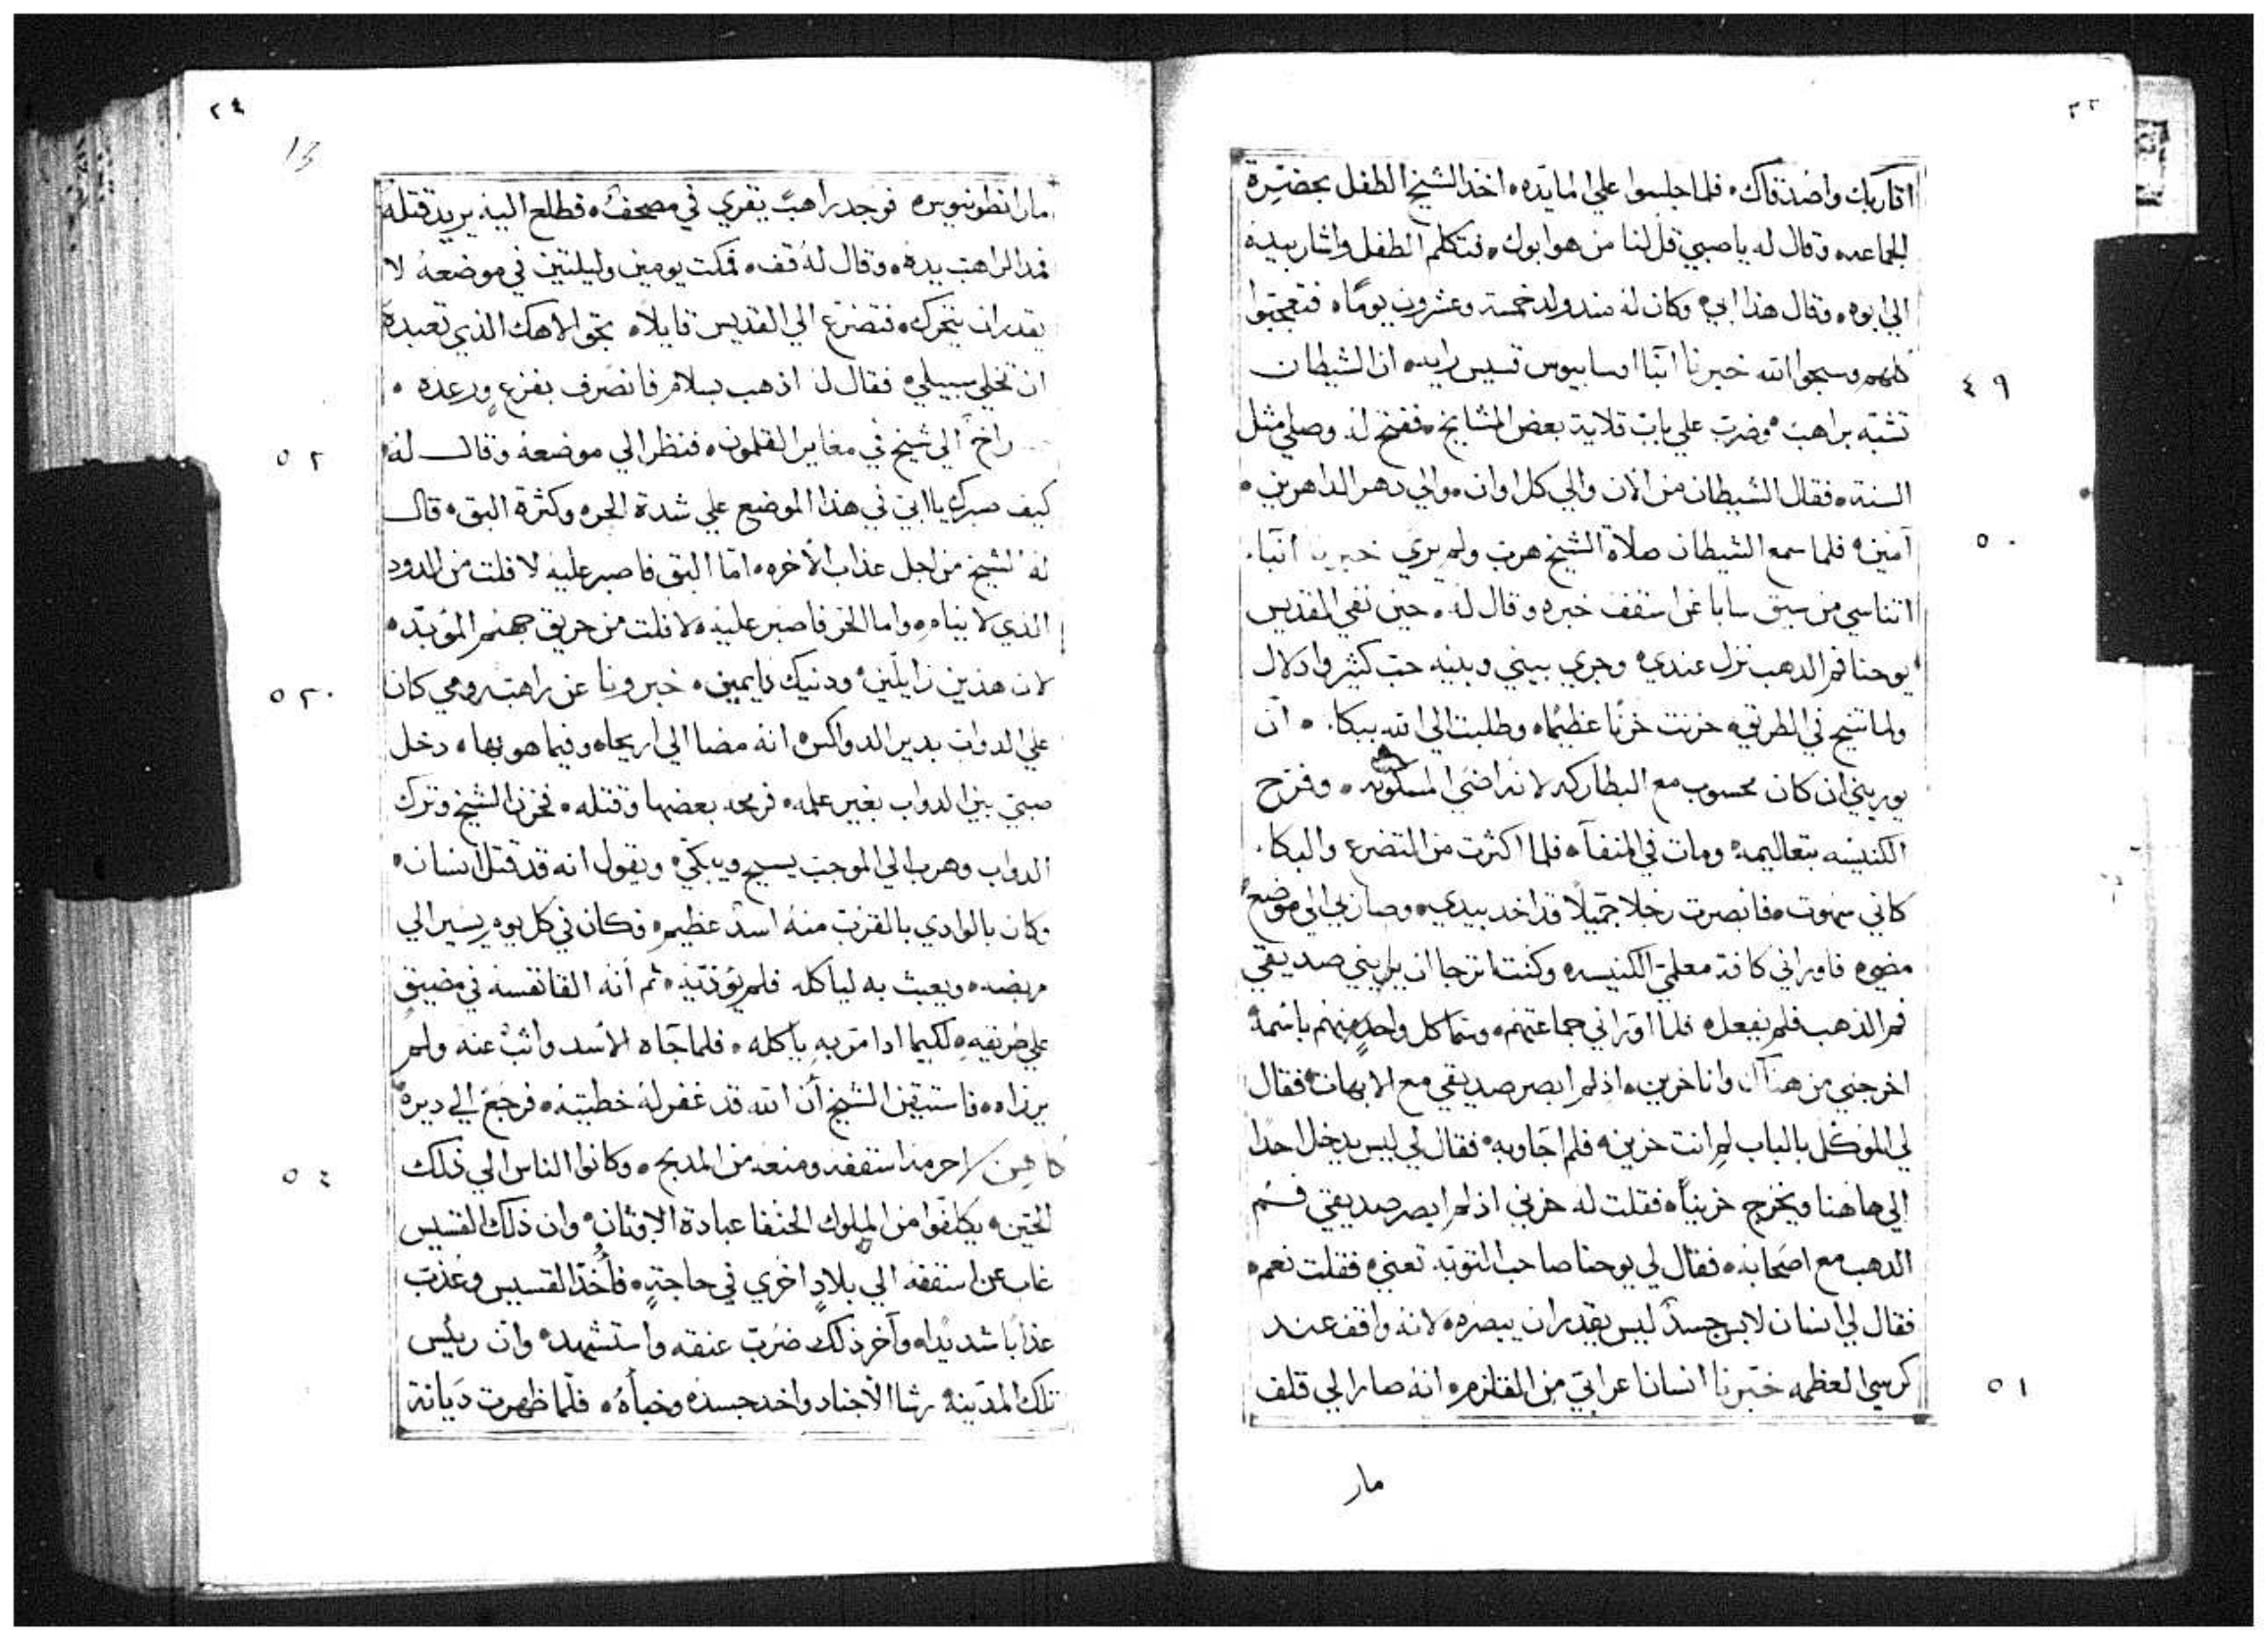 ٢٣
اقاربك واصدقاك، فلما جلسوا علي المايده، اخذ الشيخ الطفل بحضرة
الجماعه، وقال له يا صبي قل لنا من هو ابوك، فتكلم الطفل واشار بيده
الي ابوه، وقال هذا ابي، وكان له مند ولد خمسة وعشرون يوماً، فتعجبوا
كلهم وسبحوا الله خبرنا انبا اوسابيوس قسيس رايت، ان الشيطان
٤٩
تشبه براهب، وضرب علي باب قلاية بعض المشايخ، ففتح له وصلي مثل
السنة، فقال الشيطان من الان والي كل اوان، والي دهر الداهرين،
آمين، فلما سمع الشيطان صلاة الشيخ هرب ولم يري خبرنا انبا
٥٠
اتناسي من سيق سابا عن اسقف خبره وقال له، حين نفي القديس
يوحنا فم الدهب نزل عندي، وجري بيني وبينه حب كثير وادلال
ولما تنيح في الطريق، حزنت حزنًا عظيمًا، وطلبت الي الله ببكا، ان
يوريني ان كان محسوب مع البطاركه لانه اضي المسكونه، وفرح
الكنيسه بتعاليمه، ومات في المنفآ، فلما اكثرت من التضرع والبكا
كاني سهوت، فابصرت رجلا جميلًا قد اخد بيدي، وصار بي الي موضع
مضي، فاوراني كافة معلمي الكنيسه وكنت اترجا ان يريني صديقي
فم الدهب فلم يفعل، فلما اوراني جماعتهم، وسما كل واحدٍ منهم باسمه
اخرجني من هناك وانا حزين، اذ لم ابصر صديقي مع الابهات، فقال
لي الموكل بالباب لمِ انت حزين، فلم اجاوبه، فقال لي ليس يدخل احدًا
الي هاهنا ويخرج حزيناً، فقلت له حزني اذ لم ابصر صديقي فم
الدهب مع اصحابه، فقال لي يوحنا صاحب التوبه تعني، فقلت نعم،
فقال لي انسان لابس جسدٌ ليس يقدر ان يبصره، لانه واقف عند
كرسي العظمه خبّرنا انسانا عرابي من القلزم، انه صار الي قلف
٥١
مار
٢٤
13
مار انطونيوس، فوجد راهب يقري في مصحفٌ، فطلع اليه يريد قتله
فمد الراهب يده، وقال له قف، فمكت يومين وليلتين في موضعه لا
يقدر ان يتحرك، فتضرع الي القديس قايلاً، بحق الاهك الذي تعبده
ان تخلي سبيلي، فقال له اذهب بسلام، فانصرف بفزعٍ ورعده،
راخ الي شيخ في مغاير القلمون، فنظر الي موضعه وقال له
٥٢
كيف صبرك يا ابي في هذا الموضع علي شدة الحر، وكثرة البق، قال
له الشيخ من اجل عذاب الآخره، امّا البق فاصبر عليه لافلت من الدود
الذي لا ينام، واما الحر فاصبر عليه، لافلت من حريق جهنم المؤبده
لان هذين زايلين، ودنيك دايمين، خبرونا عن راهب رومي كان
٥٣
علي الدواب بدير الدواكس، انه مضا الي اريحا، وفيما هو بها، دخل
صبي بين الدواب بغير علمه، فرمحه بعضها وقتله، فحزن الشيخ وترك
الدواب وهرب الي الموجب يسيح ويبكي، ويقول انه قد قتل انسان،
وكان بالوادي بالقرب منهُ اسدٌ عظيم، فكان في كل يوم يسير الي
مربضه، ويعبث به لياكله فلم يؤذيه، ثم انه القا نفسه في مضيق
علي طريقه، لكيما ادا مر به ياكله، فلما جآه الاسد واثب عنه ولم
يرزاه، فاستيقن الشيخ أن الله قد غفر له خطيته، فرجع الي ديره
كاهن احرمه اسقفه ومنعه من المدبح، وكانوا الناس الي ذلك
٥٤
الحين، يكلّفوا من الملوك الحنفا عبادة الاوثان، وان ذلك القسيس
غاب عن اسقفه الي بلادٍ اخري في حاجتهٍ، فأُخذ القسيس وعُذب
عذابا شديدًا، وآخر ذلك ضُرب عنقه واستشهد، وانّ رييس
تلك المدينه رشا الاجناد واخد جسده وخبأهُ، فلّما ظهرت ديانة